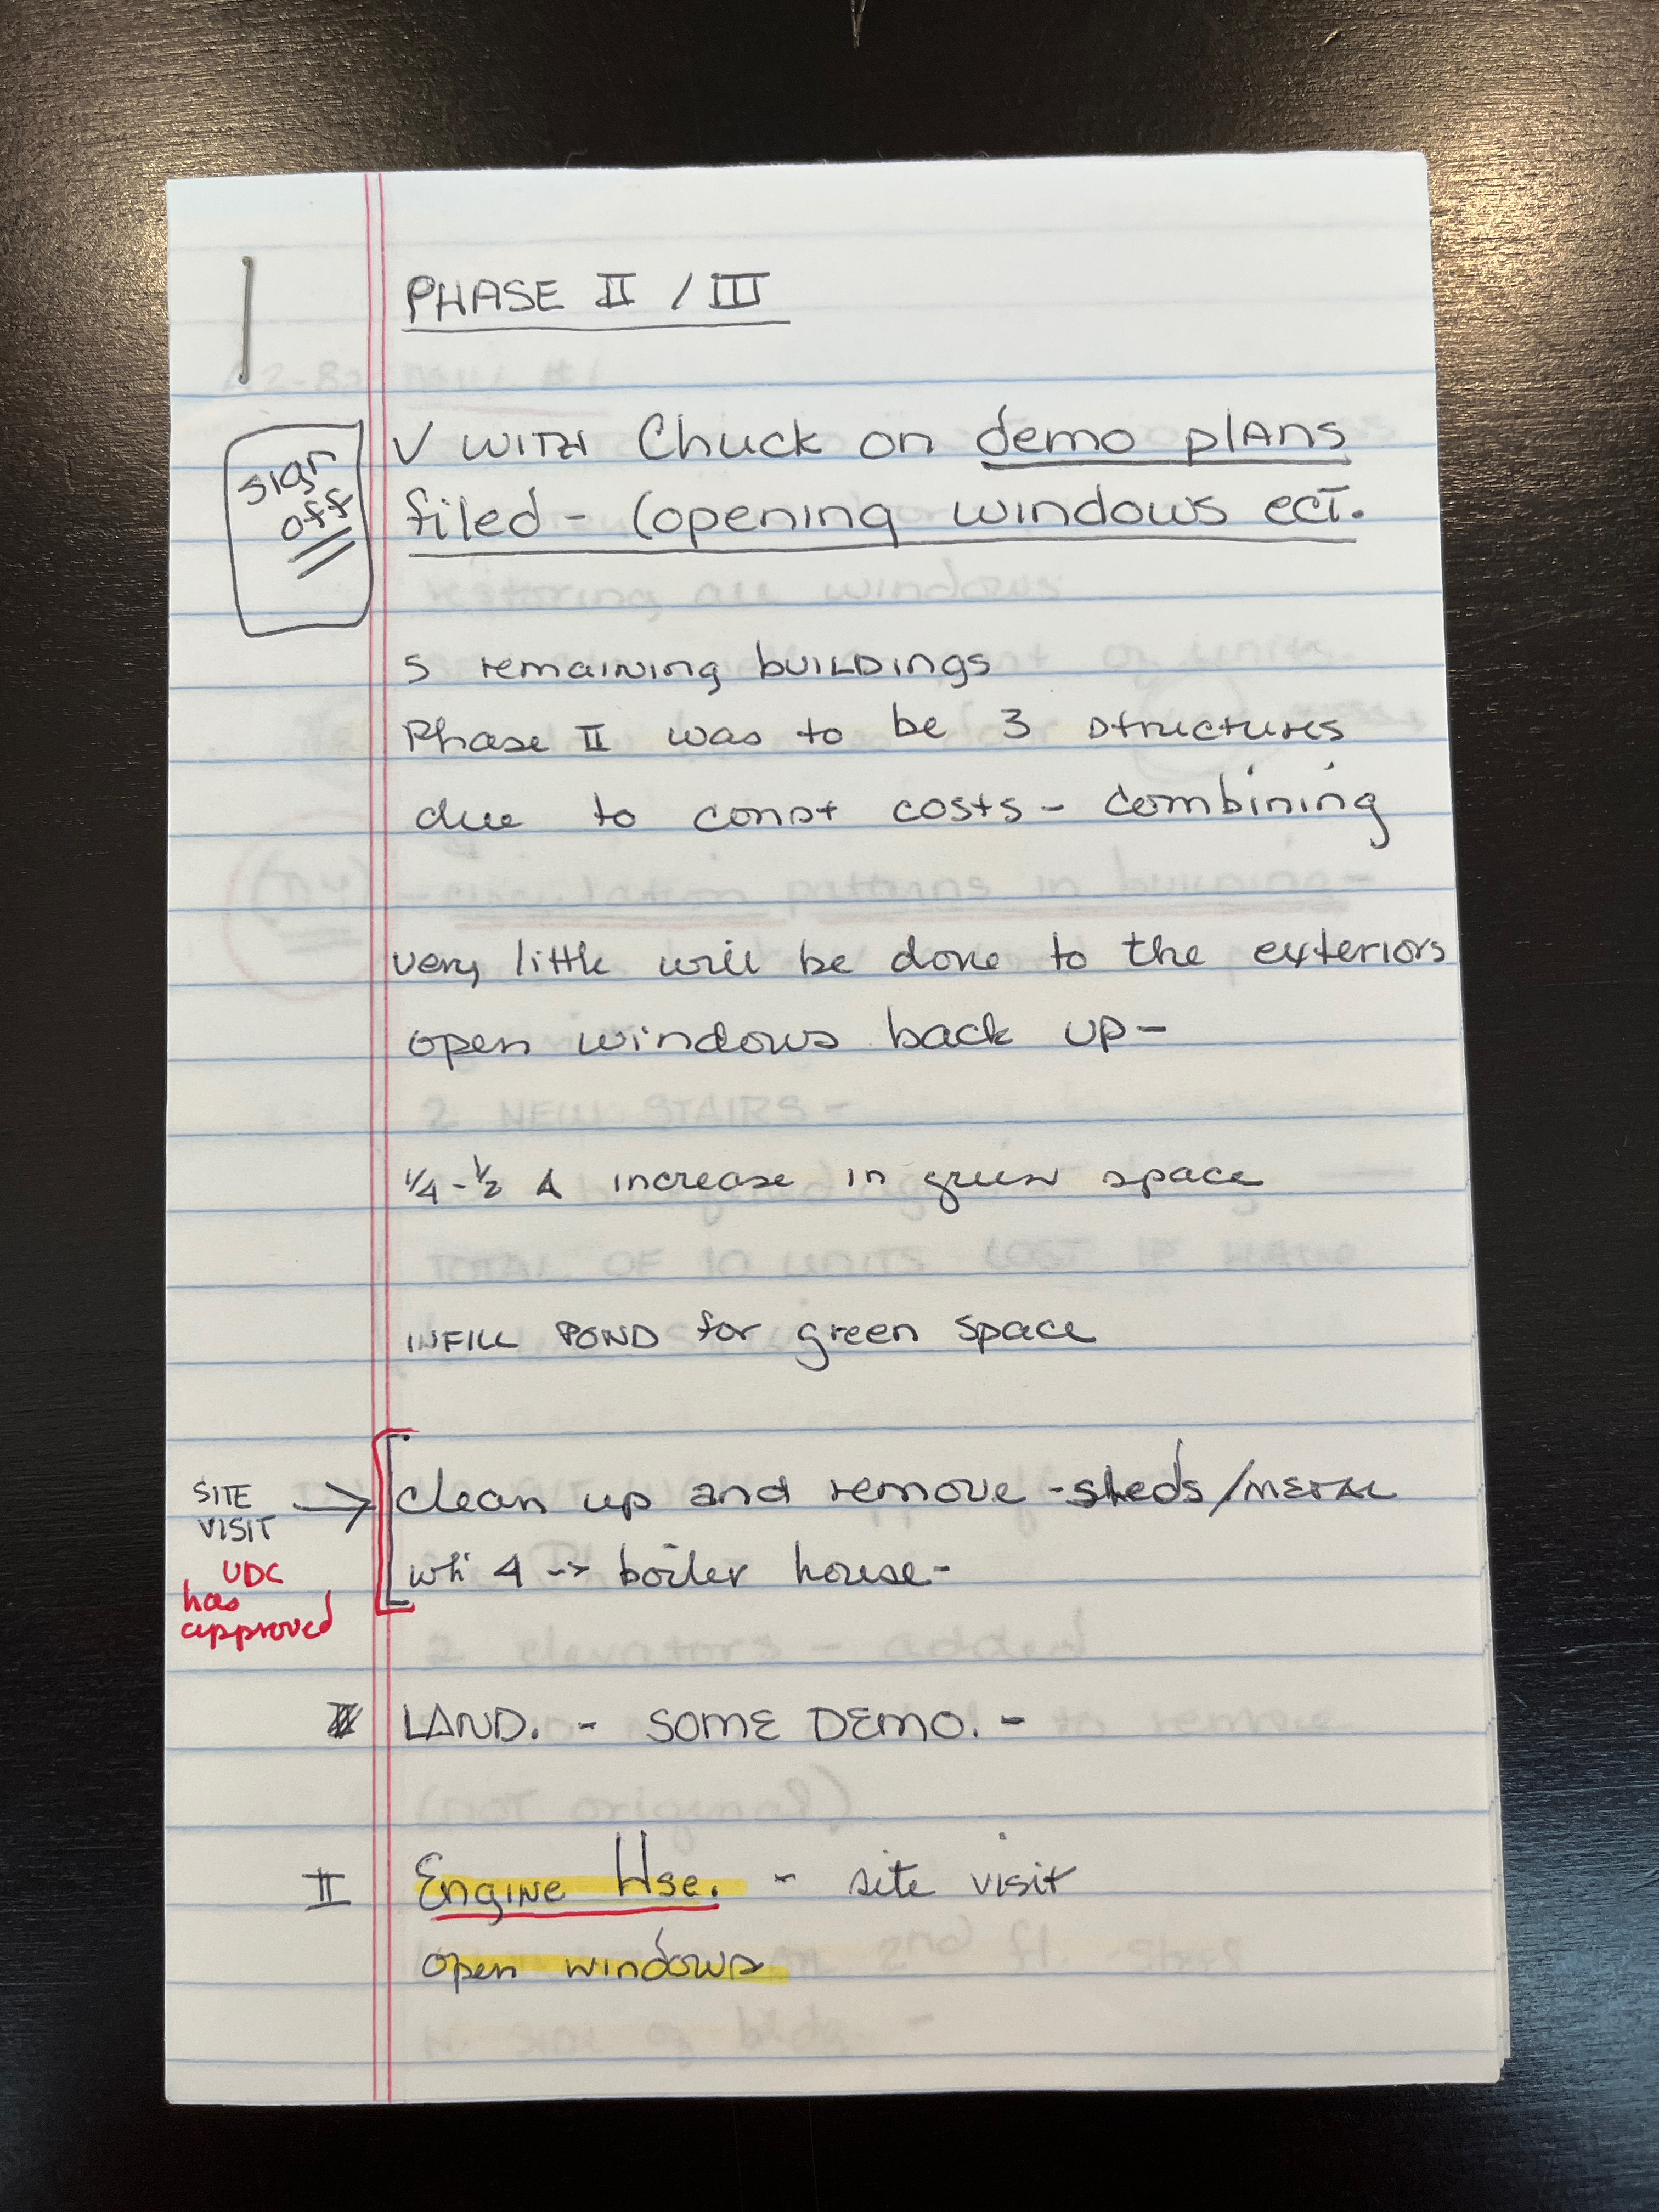 PHASE II / III
sign
off
√ WITH Chuck on demo plans
filed - (opening windows ect.
5 remaining buildings
Phase II was to be 3 structures
due to const costs - combining
very little will be done to the exteriors
open windows back up -
1/4 - 1/2 A increase in green space
INFILL POND for green space
SITE
VISIT → clean up and remove - sheds/METAL
UDC
has
approved
4 -> boiler house -
LAND. - SOME DEMO. -
II Engine Hse. - site visit
open windows